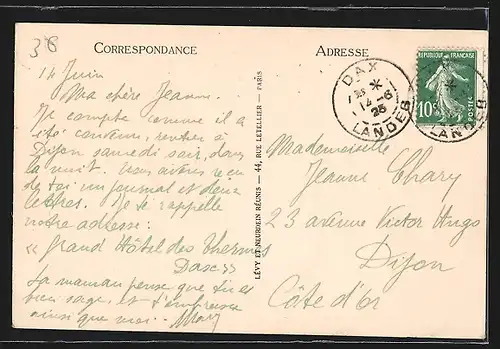 38
CORRESPONDANCE
ADRESSE
14 Juin
Ma chère Jeanne.
Je compte comme il a
été convenu, rentrer à
Dijon samedi soir, dans
la nuit. Nous avons reçu
de toi un journal et deux
lettres. Je te rappelle
notre adresse:
« Grand Hôtel des Thermes
Dax »
Ta maman pense que tu es
bien sage, et t'embrasse
ainsi que moi.
LÉVY ET NEURDEIN RÉUNIS — 44, RUE LETELLIER — PARIS
DAX
14-6
25
LANDES
REPUBLIQUE FRANÇAISE
10c
POSTES
LANDES
Mademoiselle
Jeanne Chary
23 avenue Victor Hugo
Dijon
Côte d'or